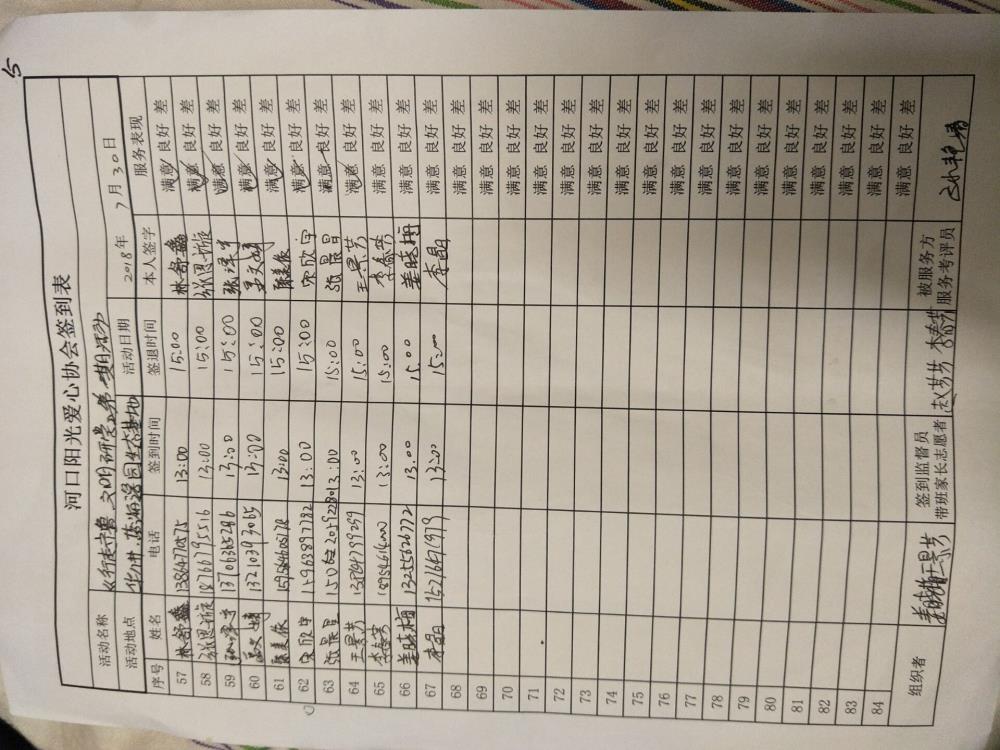 5
河口阳光爱心协会签到表
活动名称 《行走齐鲁 文明研学》第一期活动
活动地点 生态基地 活动日期 2018年 7月30日
序号 姓名 电话 签到时间 签退时间 本人签字 服务表现
57 林舒鑫 13864770575 13:00 15:00 林舒鑫 满意 良好 差
58 张恩旋 18766795516 13:00 15:00 张恩旋 满意 良好 差
59 13706365286 13:00 15:00 满意 良好 差
60 孟文婧 13210393065 13:00 15:00 孟文婧 满意 良好 差
61 13:00 15:00 满意 良好 差
62 宋欣宇 15963897782 13:00 15:00 宋欣宇 满意 良好 差
63 张晨星 13:00 15:00 满意 良好 差
64 王景芳 13:00 15:00 王景芳 满意 良好 差
65 李春芳 18954614000 13:00 15:00 李春芳 满意 良好 差
66 姜晓梅 13255626772 13.00 15.00 姜晓梅 满意 良好 差
67 李晶 15216471979 13:00 15:00 李晶 满意 良好 差
68 满意 良好 差
69 满意 良好 差
70 满意 良好 差
71 满意 良好 差
72 满意 良好 差
73 满意 良好 差
74 满意 良好 差
75 满意 良好 差
76 满意 良好 差
77 满意 良好 差
78 满意 良好 差
79 满意 良好 差
80 满意 良好 差
81 满意 良好 差
82 满意 良好 差
83 满意 良好 差
84 满意 良好 差
组织者 姜晓梅 王景芳 签到监督员 赵芳芳 李春芳 被服务方
带班家长志愿者 服务考评员